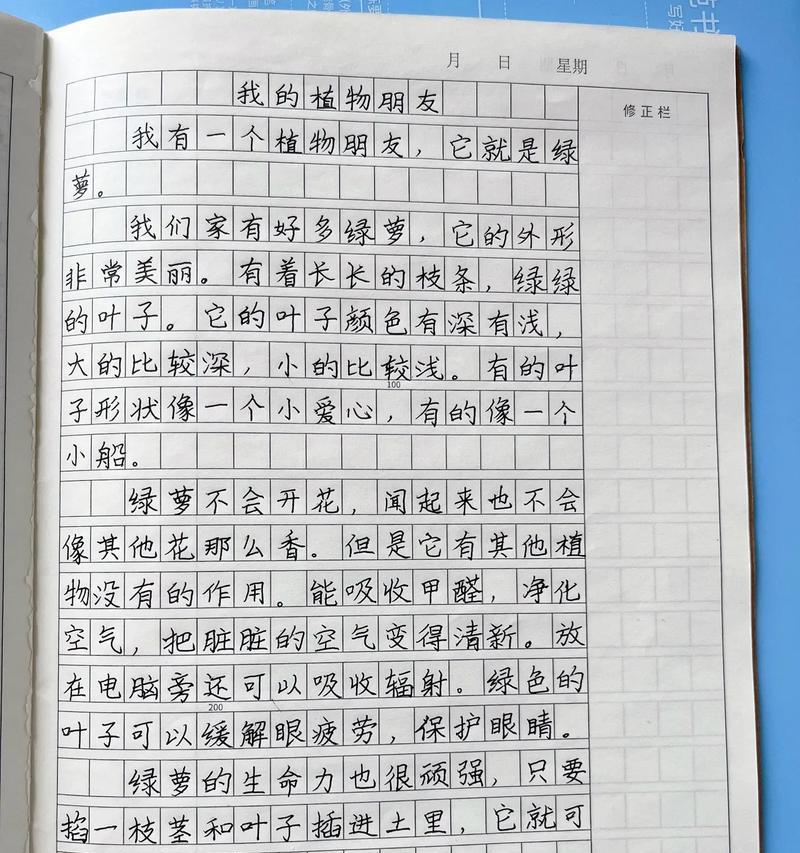 月 日 星期
修正栏
我的植物朋友
我有一个植物朋友，它就是绿
萝。
我们家有好多绿萝，它的外形
非常美丽。有着长长的枝条，绿绿
的叶子。它的叶子颜色有深有浅，
大的比较深，小的比较浅。有的叶
100
子形状像一个小爱心，有的像一个
小船。
绿萝不会开花，闻起来也不会
像其他花那么香。但是它有其他植
物没有的作用。能吸收甲醛，净化
空气，把脏脏的空气变得清新。放
在电脑旁还可以吸收辐射。绿色的
200
叶子可以缓解眼疲劳，保护眼睛。
绿萝的生命力也很顽强，只要
掐一枝茎和叶子插进土里，它就可